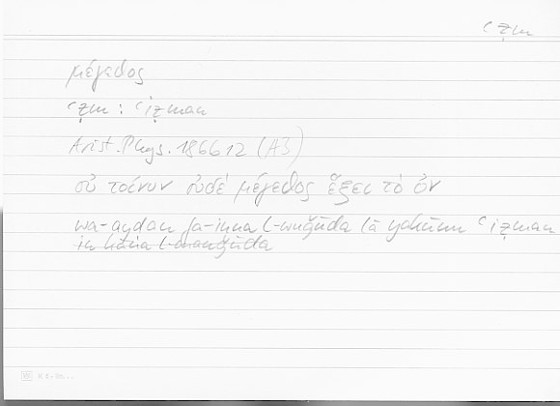 ʿẓm
μέγεθος
ʿẓm : ʿiẓman
Arist. Phys. 186b12 (A3)
οὐ τοίνυν οὐδὲ μέγεθος ἕξει τὸ ὄν
wa-ayḍan fa-inna l-wuǧūda lā yakūnu ʿiẓman
in kāna l-mauǧūda